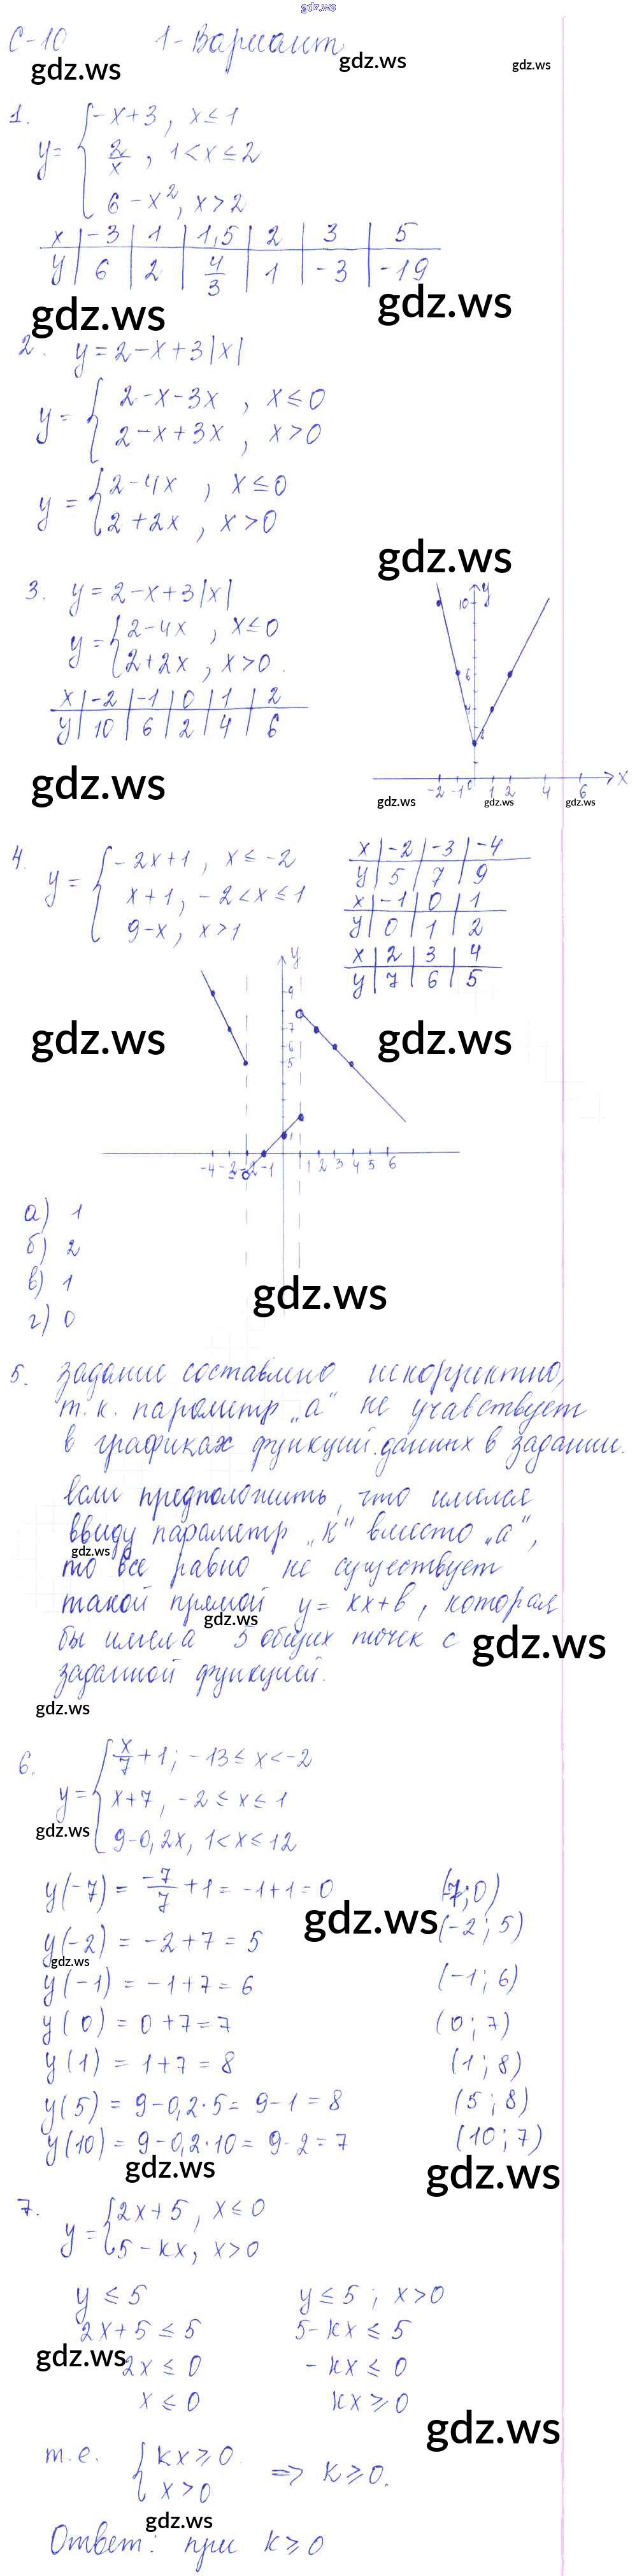 gdz.ws
С-10 1-Вариант
gdz.ws gdz.ws gdz.ws
1.
y= { -x+3, x≤1
2/x, 1<x≤2
6-x², x>2
x | -3 | 1 | 1,5 | 2 | 3 | 5
y | 6 | 2 | 4/3 | 1 | -3 | -19
gdz.ws gdz.ws
2. y=2-x+3|x|
y= { 2-x-3x, x≤0
2-x+3x, x>0
y= { 2-4x, x≤0
2+2x, x>0
gdz.ws
3. y=2-x+3|x|
y= { 2-4x, x≤0
2+2x, x>0.
x | -2 | -1 | 0 | 1 | 2
y | 10 | 6 | 2 | 4 | 6
y
10
6
4
-2 -1 0 1 2 4 6 x
gdz.ws
gdz.ws gdz.ws gdz.ws
4.
y= { -2x+1, x≤-2
x+1, -2<x≤1
9-x, x>1
x | -2 | -3 | -4
y | 5 | 7 | 9
x | -1 | 0 | 1
y | 0 | 1 | 2
x | 2 | 3 | 4
y | 7 | 6 | 5
y
9
7
6
5
1
-4 -2 -1 1 2 3 4 5 6
gdz.ws gdz.ws
а) 1
б) 2
в) 1
г) 0
gdz.ws
5. Задание составлено некорректно,
т.к. параметр „а" не учавствует
в графиках функций данных в задании.
если предположить, что имелся
ввиду параметр „к" вместо „а",
gdz.ws
то все равно не существует
такой прямой y=kx+b, которая
gdz.ws
бы имела 5 общих точек с
gdz.ws
заданной функцией.
gdz.ws
6.
y= { x/7+1; -13≤x<-2
x+7, -2≤x≤1
9-0,2x, 1<x≤12
gdz.ws
y(-7) = -7/7+1 = -1+1=0 (-7;0)
gdz.ws
y(-2) = -2+7=5 (-2;5)
gdz.ws
y(-1) = -1+7=6 (-1;6)
y(0) = 0+7=7 (0;7)
y(1) = 1+7=8 (1;8)
y(5) = 9-0,2·5= 9-1=8 (5;8)
y(10) = 9-0,2·10= 9-2=7 (10;7)
gdz.ws gdz.ws
7.
y= { 2x+5, x≤0
5-kx, x>0
y≤5 y≤5; x>0
2x+5≤5 5-kx≤5
gdz.ws
2x≤0 -kx≤0
x≤0 kx≥0
gdz.ws
т.е. { kx≥0
x>0 => k≥0.
gdz.ws
Ответ: при k≥0